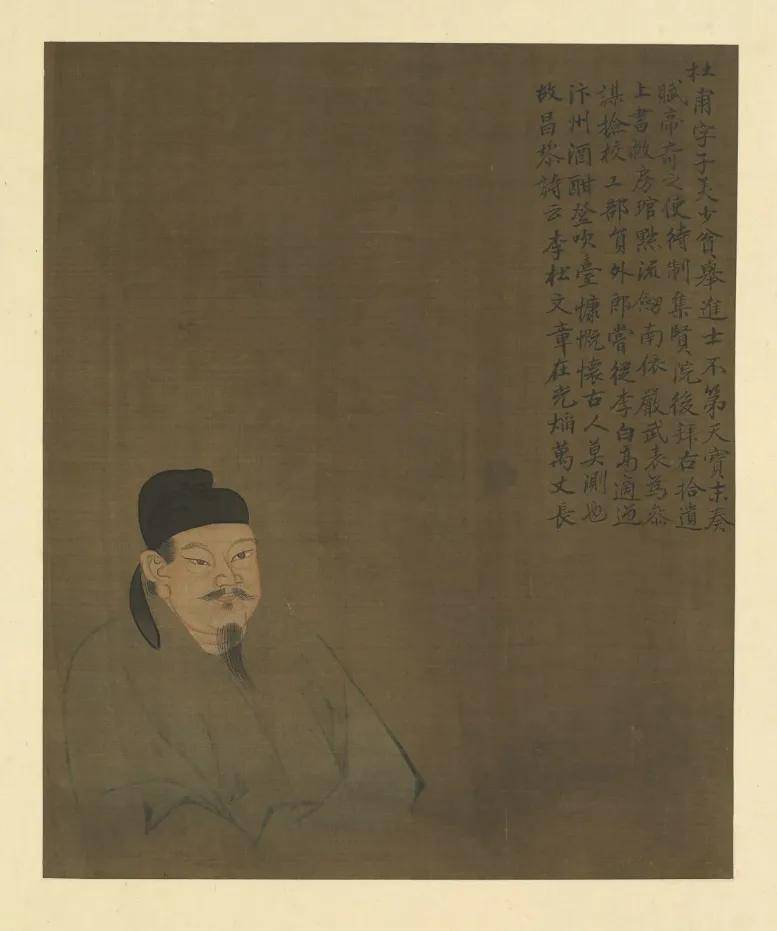 杜甫字子美少貧舉進士不第天寶末奏
賦帝奇之使待制集賢院後拜右拾遺
上書救房琯黜流劍南依嚴武表為參
謀檢校工部員外郎嘗從李白高適過
汴州酒酣登吹臺慷慨懷古人莫測也
故昌黎詩云李杜文章在光燄萬丈長